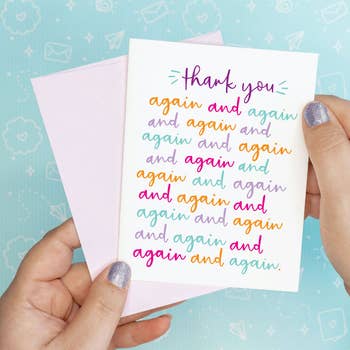 thank you
again and again
and again and
again and again
and again and
again and again
and again and
again and again
and again and
again and again.